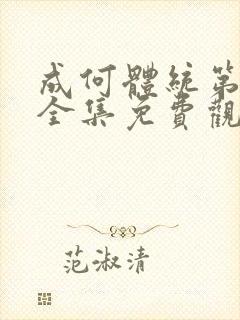 成何體統第
全集免費觀
范淑清